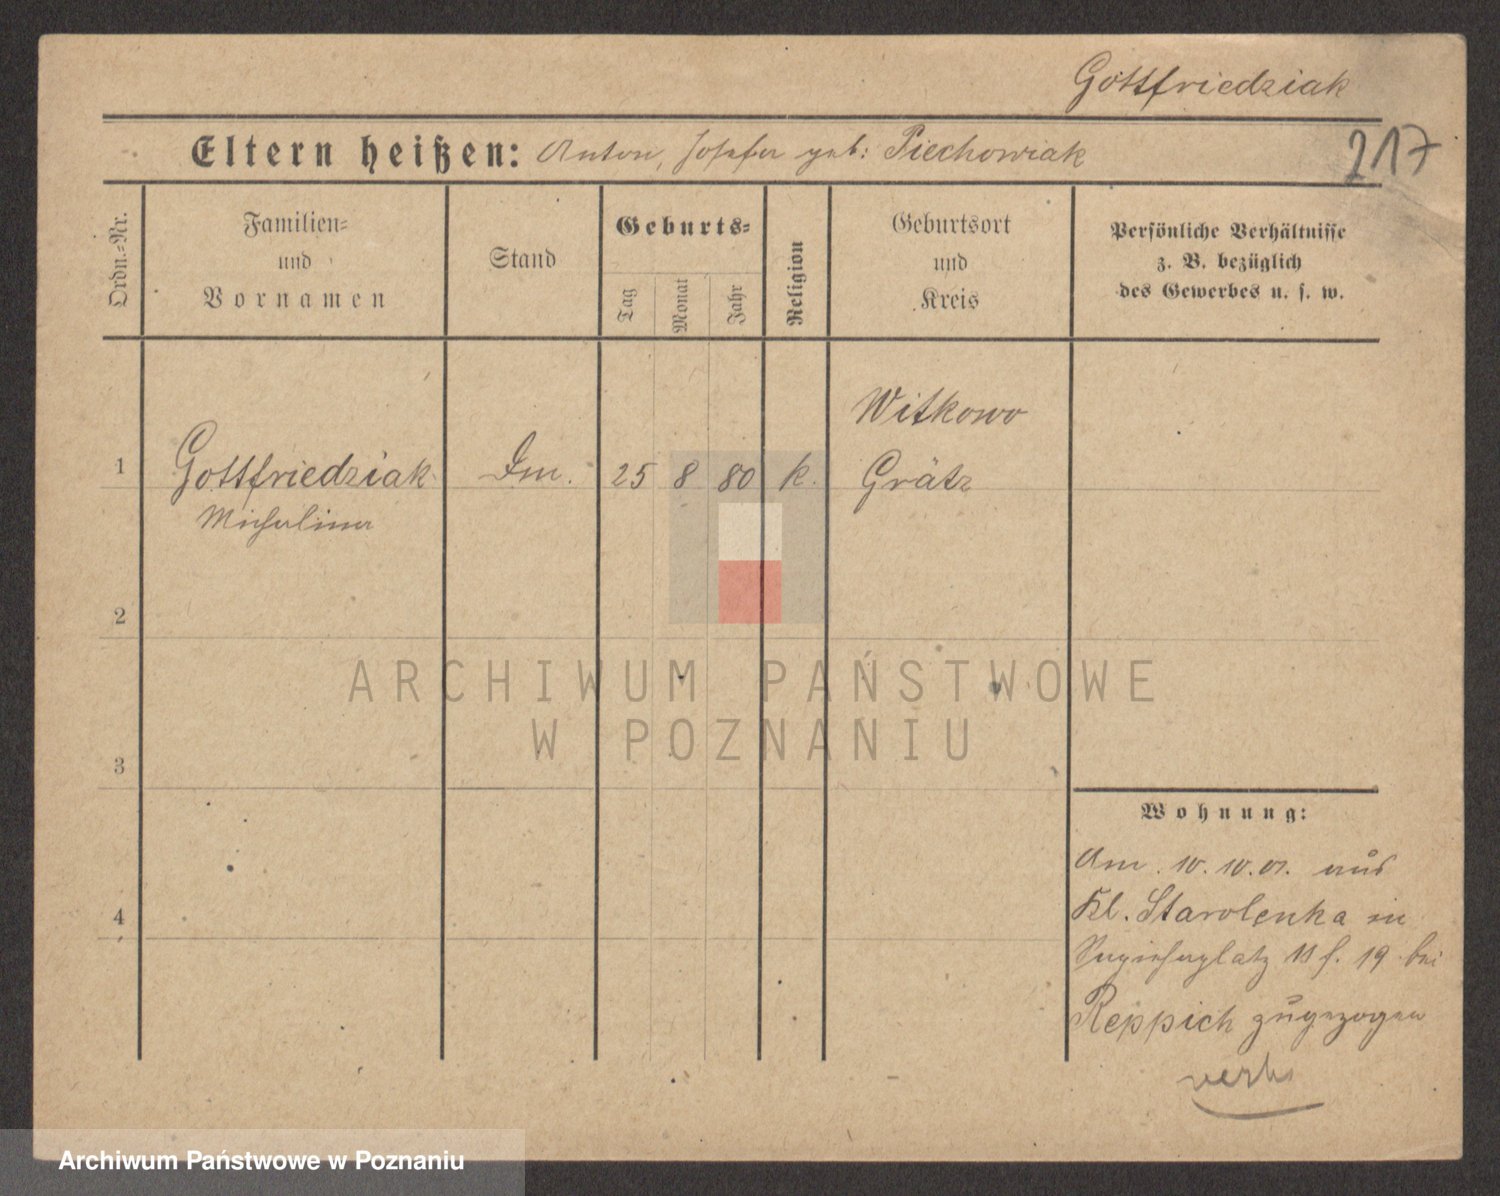 Gottfriedziak
217
Eltern heißen: Anton, Josefa geb: Piechowiak
Ordn.=Nr.
Familien=
und
Vornamen
Stand
Geburts=
Tag
Monat
Jahr
Religion
Geburtsort
und
Kreis
Persönliche Verhältnisse
z. B. bezüglich
des Gewerbes u. s. w.
Witkowo
1 Gottfriedziak 25 8 80 k. Grätz
Michalina
2
3
4
Wohnung:
Am 10.10.01. aus
Kl. Starolenka in
19 bei
Reppich zugezogen
ARCHIWUM PAŃSTWOWE
W POZNANIU
Archiwum Państwowe w Poznaniu